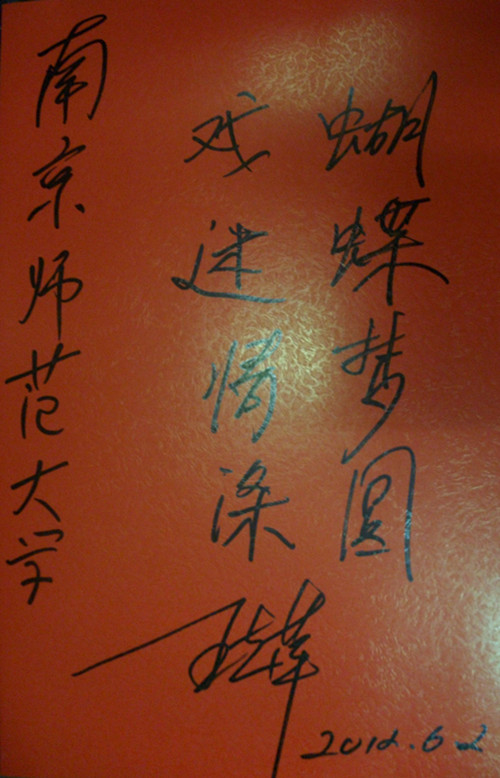 蝴蝶梦圆
戏迷情深
南京师范大学
王志萍
2012.6.2